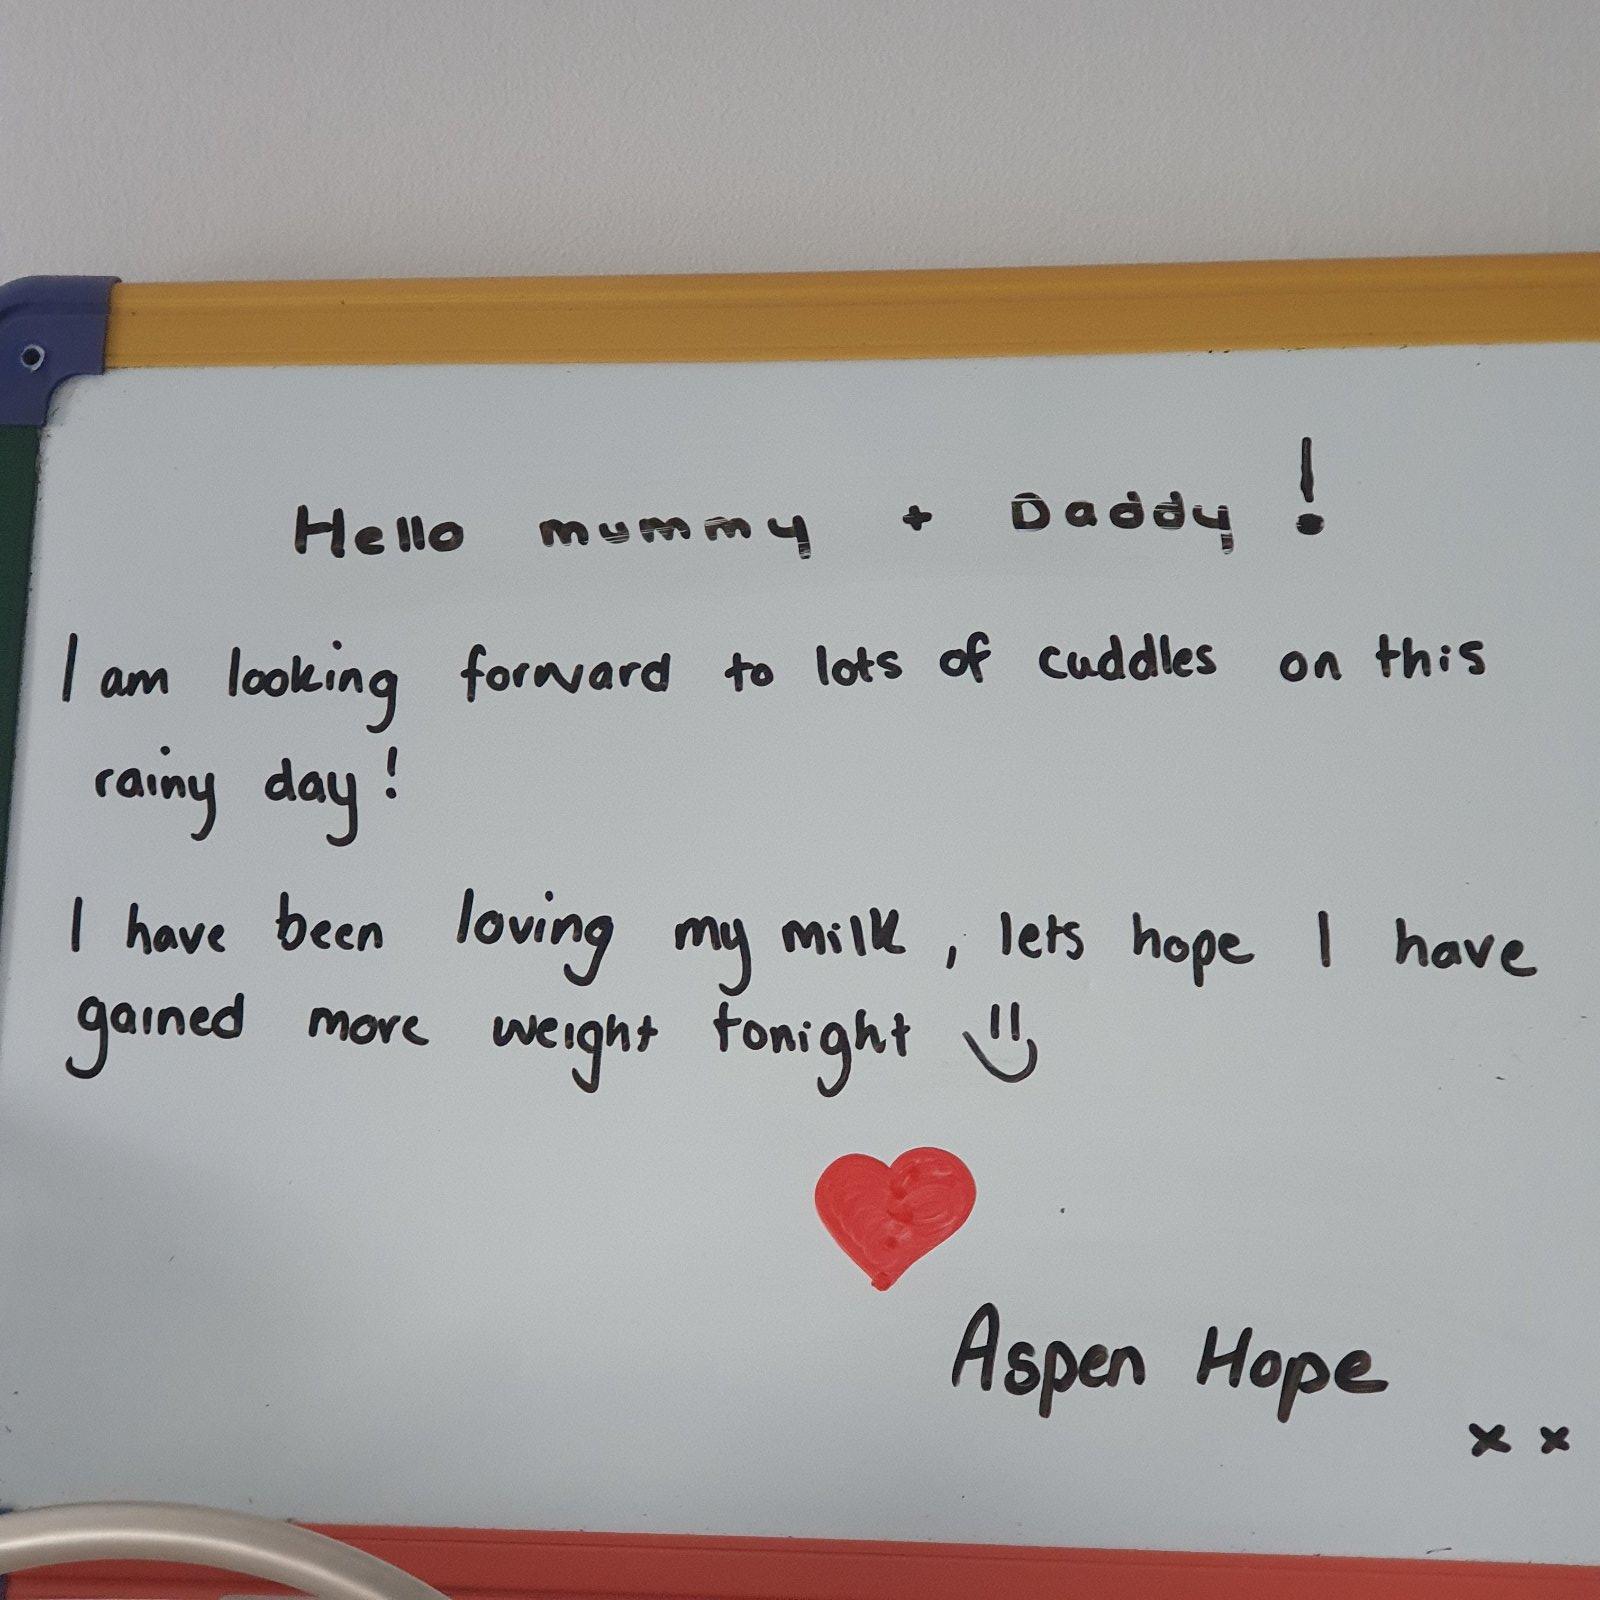 Hello mummy + Daddy !
I am looking forward to lots of cuddles on this
rainy day !
I have been loving my milk , lets hope I have
gained more weight tonight
Aspen Hope
x x